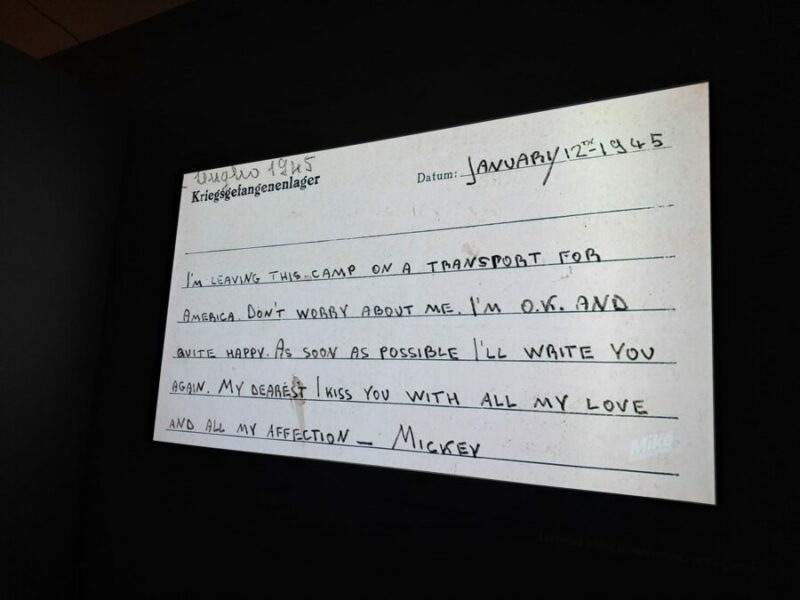 Luglio 1945
Kriegsgefangenenlager
Datum: JANUARY 12TH-1945
I'M LEAVING THIS CAMP ON A TRANSPORT FOR
AMERICA. DON'T WORRY ABOUT ME. I'M O.K. AND
QUITE HAPPY. AS SOON AS POSSIBLE I'LL WRITE YOU
AGAIN. MY DEAREST I KISS YOU WITH ALL MY LOVE
AND ALL MY AFFECTION – MICKEY
Mike